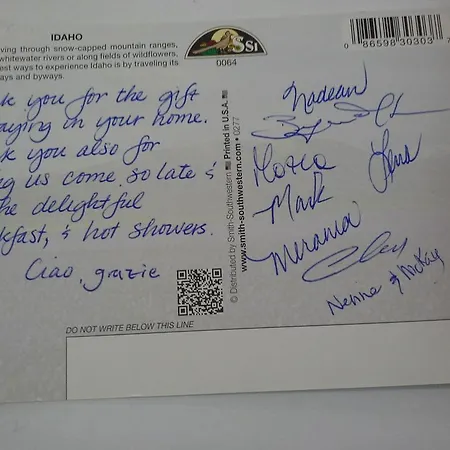 IDAHO
ving through snow-capped mountain ranges,
whitewater rivers or along fields of wildflowers,
est ways to experience Idaho is by traveling its
ays and byways.
SSI
0064
0 86598 30303 7
k you for the gift
aying in your home.
k you also for
ng us come so late &
he delightful
kfast, & hot showers.
Ciao, grazie
© Distributed by Smith-Southwestern Printed in U.S.A.
www.smith-southwestern.com • 0277
Nadean
Mark
Miranda
Nenna & McKay
DO NOT WRITE BELOW THIS LINE